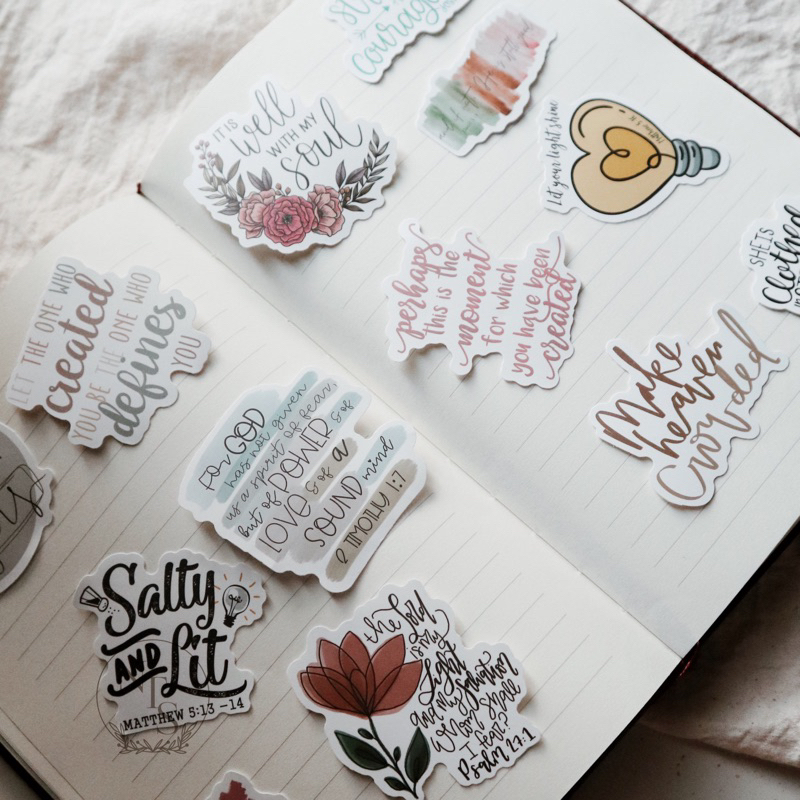 courage
IT IS
well
WITH MY
soul
Let your light shine
perhaps
this is the
moment
for which
you have been
created
SHE IS
Clothed
Make
heaven
Crowded
LET THE ONE WHO
created
YOU BE THE ONE WHO
defines
YOU
For GOD
has not given
us a spirit of fear,
but of POWER & of
LOVE & of a
SOUND mind
2 TIMOTHY 1:7
Salty
AND
Lit
MATTHEW 5:13-14
the Lord
is my
Light
and my
Salvation
Whom Shall
I fear?
Psalm 27:1